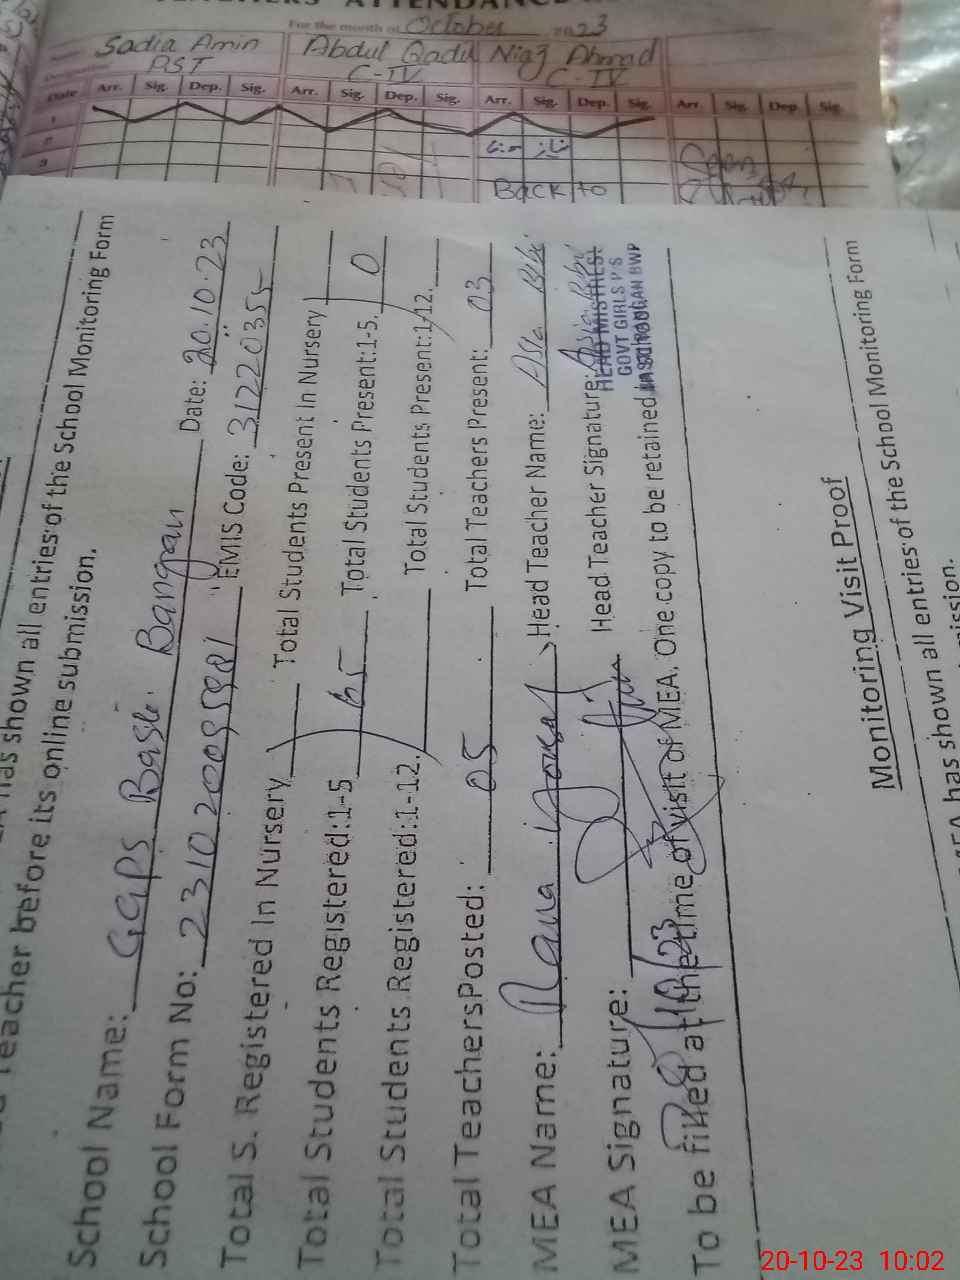 TEACHERS' ATTENDANCE
For the month of October 2023
Sadia Amin Abdul Qadir Niaz Ahmad
PST C-IV C-IV
Date Arr. Sig. Dep. Sig. Arr. Sig. Dep. Sig. Arr. Sig. Dep. Sig. Arr. Sig. Dep. Sig.
1
2
3 Seen
Back to
has shown all entries of the School Monitoring Form
Teacher before its online submission.
School Name: GGPS Basti Bangan Date: 20.10.23
School Form No: 2310200 EMIS Code: 31220355
Total S. Registered In Nursery Total Students Present In Nursery
Total Students Registered:1-5 65 Total Students Present:1-5. 0
Total Students Registered:1-12. Total Students Present:1-12.
Total Teachers Posted: 05 Total Teachers Present: 03
MEA Name: Rana Head Teacher Name: Asia Bibi
MEA Signature: Head Teacher Signature: Asia Bibi
HEAD MISTRESS
GOVT GIRLS P/S
BWP
To be filled at the time of visit of MEA. One copy to be retained in school
20/10/23
Monitoring Visit Proof
MEA has shown all entries of the School Monitoring Form
submission.
20-10-23 10:02